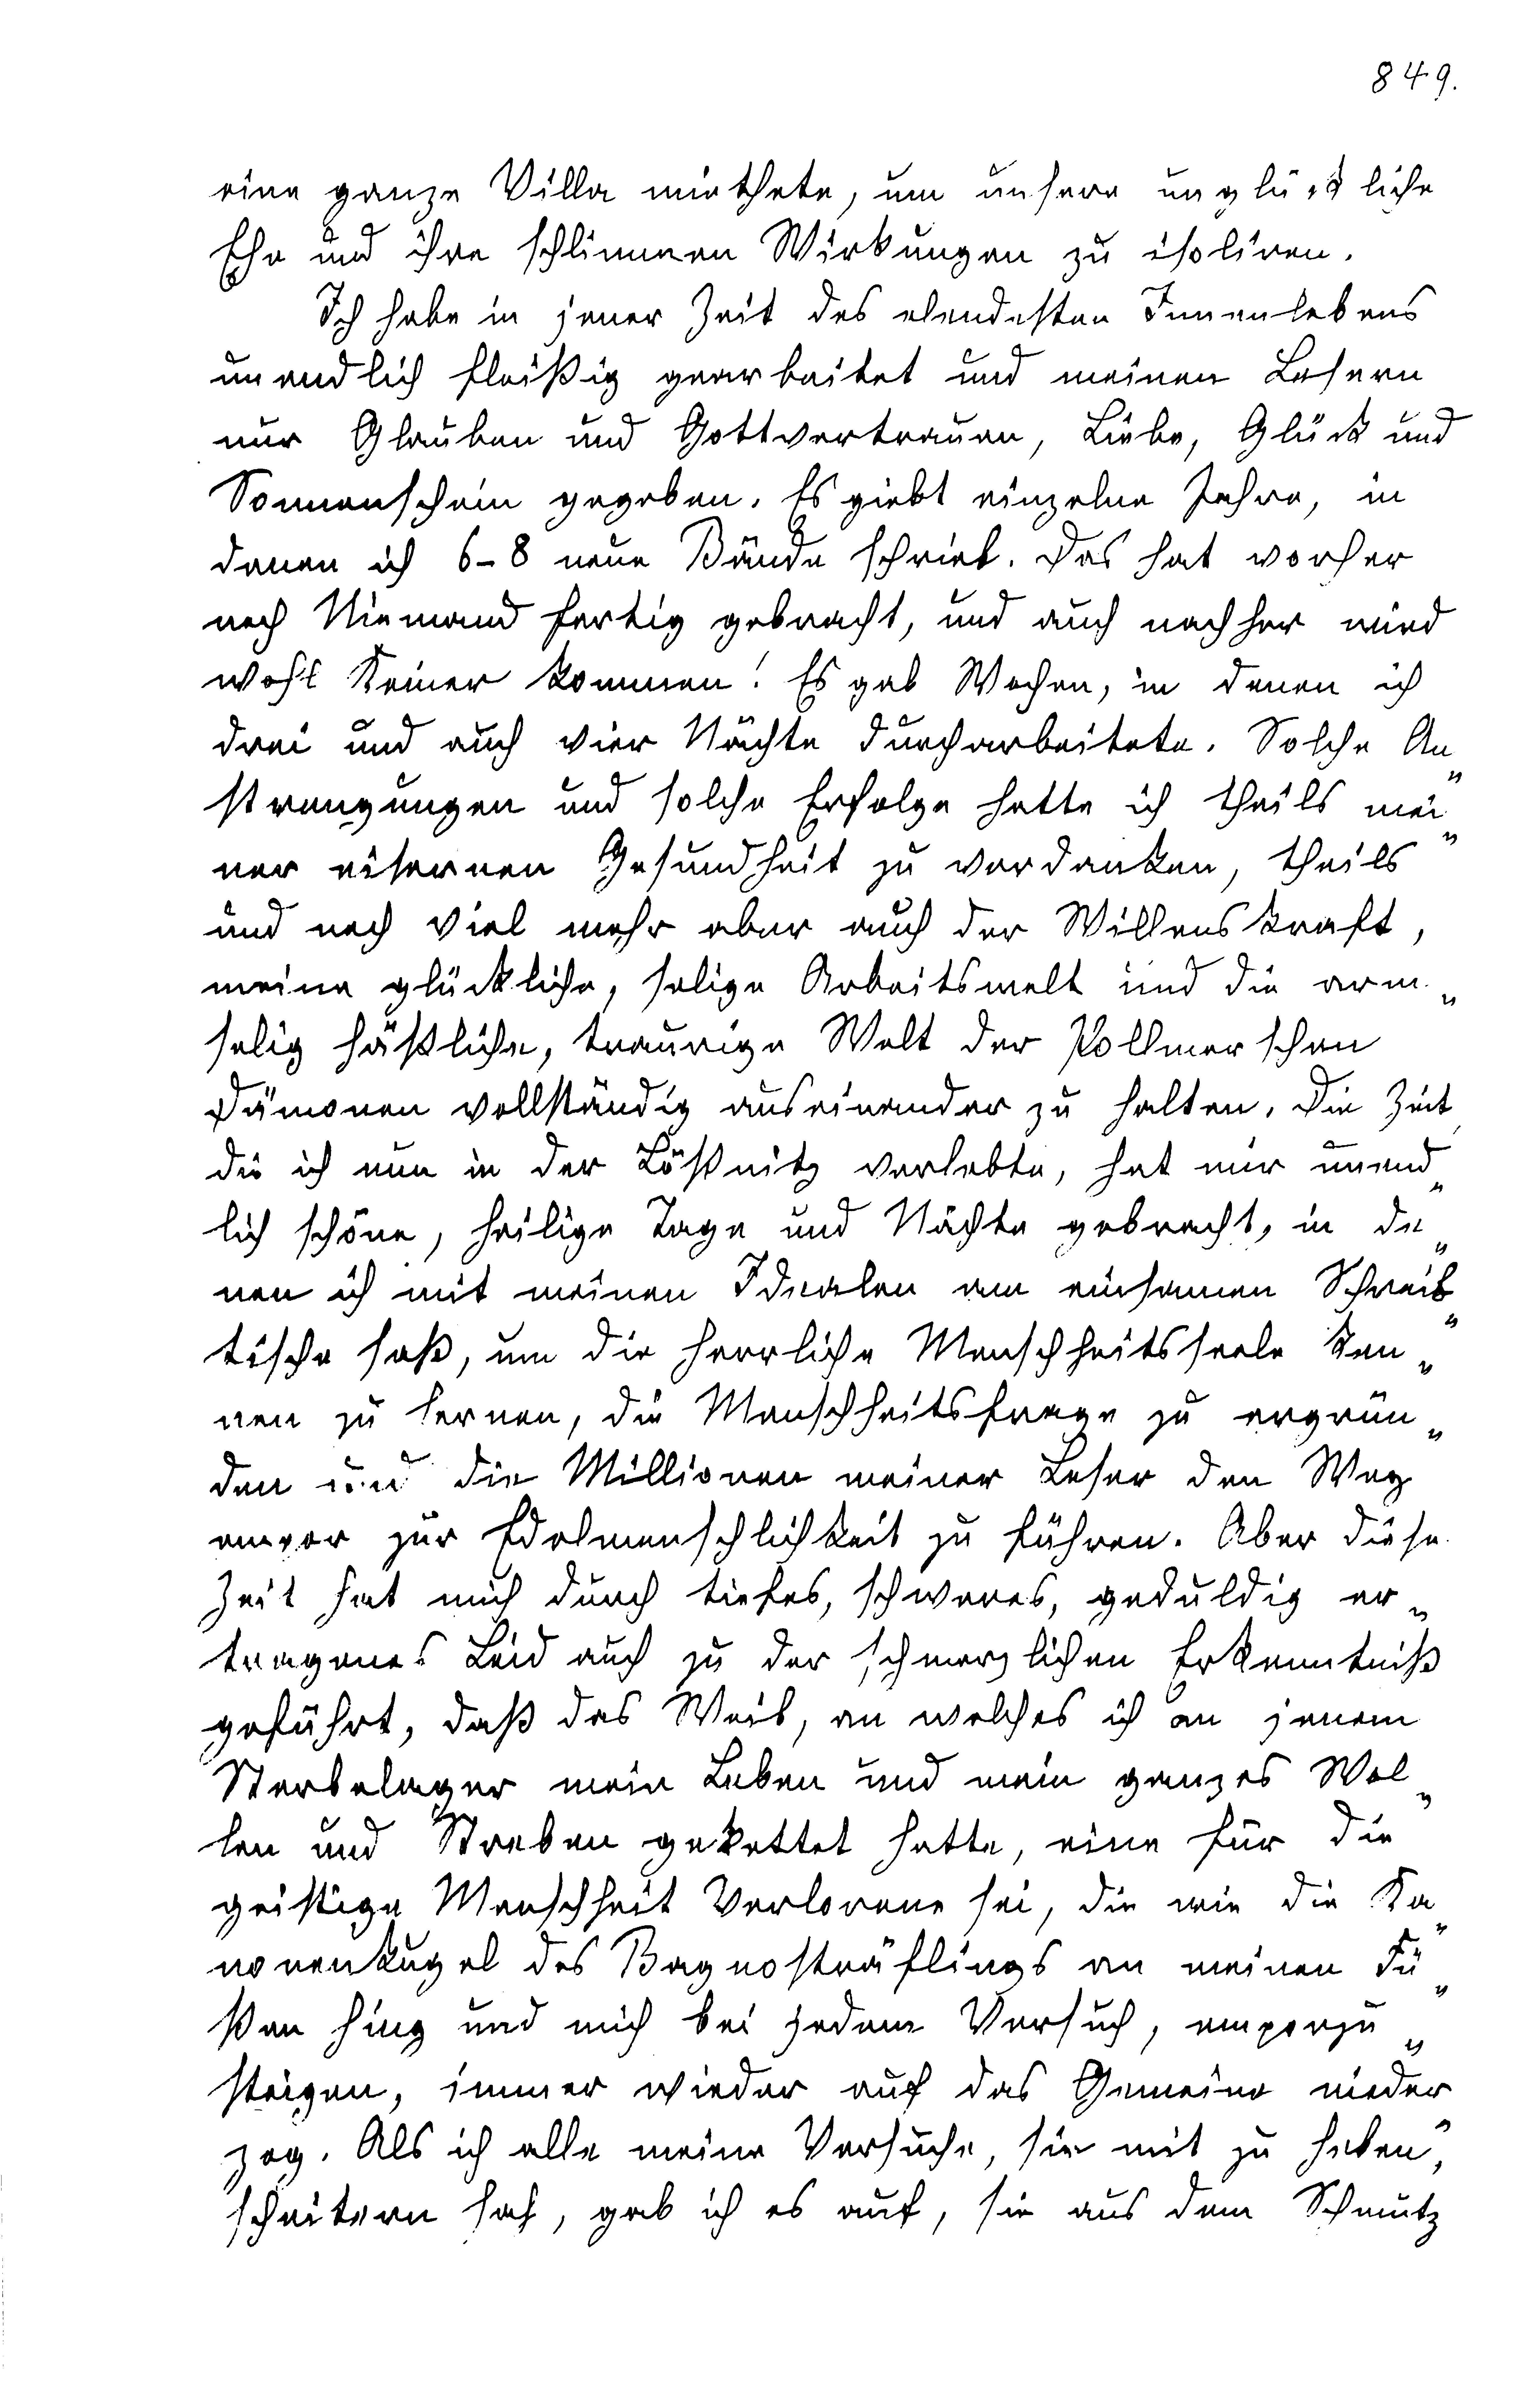 849.
eine ganze Villa miethete, um unsere unglückliche
Ehe und ihre schlimmen Wirkungen zu isoliren.
Ich habe in jener Zeit des elendesten Innenlebens
unendlich fleißig gearbeitet und meinen Lesern
nur Glauben und Gottvertrauen, Liebe, Glück und
Sonnenschein gegeben. Es giebt einzelne Jahre, in
denen ich 6-8 neue Bände schrieb. Das hat vorher
noch Niemand fertig gebracht, und auch nachher wird
wohl Keiner kommen! Es gab Wochen, in denen ich
drei und auch vier Nächte durcharbeitete. Solche An„
strengungen und solche Erfolge hatte ich theils mei„
ner eisernen Gesundheit zu verdanken, theils
und noch viel mehr aber auch der Willenskraft,
meine glückliche, selige Arbeitswelt und die arm„
selig häßliche, traurige Welt der Pollmerschen
Dämonen vollständig auseinander zu halten. Die Zeit,
die ich nun in der Lößnitz verlebte, hat mir unend„
lich schöne, heilige Tage und Nächte gebracht, in de„
nen ich mit meinen Idealen am einsamen Schreib„
tische saß, um die herrliche Menschheitsseele ken„
nen zu lernen, die Menschheitsfrage zu ergrün„
den und die Millionen meiner Leser den Weg
empor zur Edelmenschlichkeit zu führen. Aber diese
Zeit hat mich durch tiefes, schweres, geduldig er„
tragenes Leid auch zu der schmerzlichen Erkenntniß
geführt, daß das Weib, an welches ich an jenem
Sterbelager mein Leben und mein ganzes Wol„
len und Streben gekettet hatte, eine für die
geistige Menschheit Verlorene sei, die wie die Ka„
nonenkugel des Bagnosträflings an meinen Fü„
ßen hing und mich bei jedem Versuch, emporzu„
steigen, immer wieder auf das Gemeine nieder„
zog. Als ich alle meine Versuche, sie mit zu heben,
scheitern sah, gab ich es auf, sie aus dem Schmutz